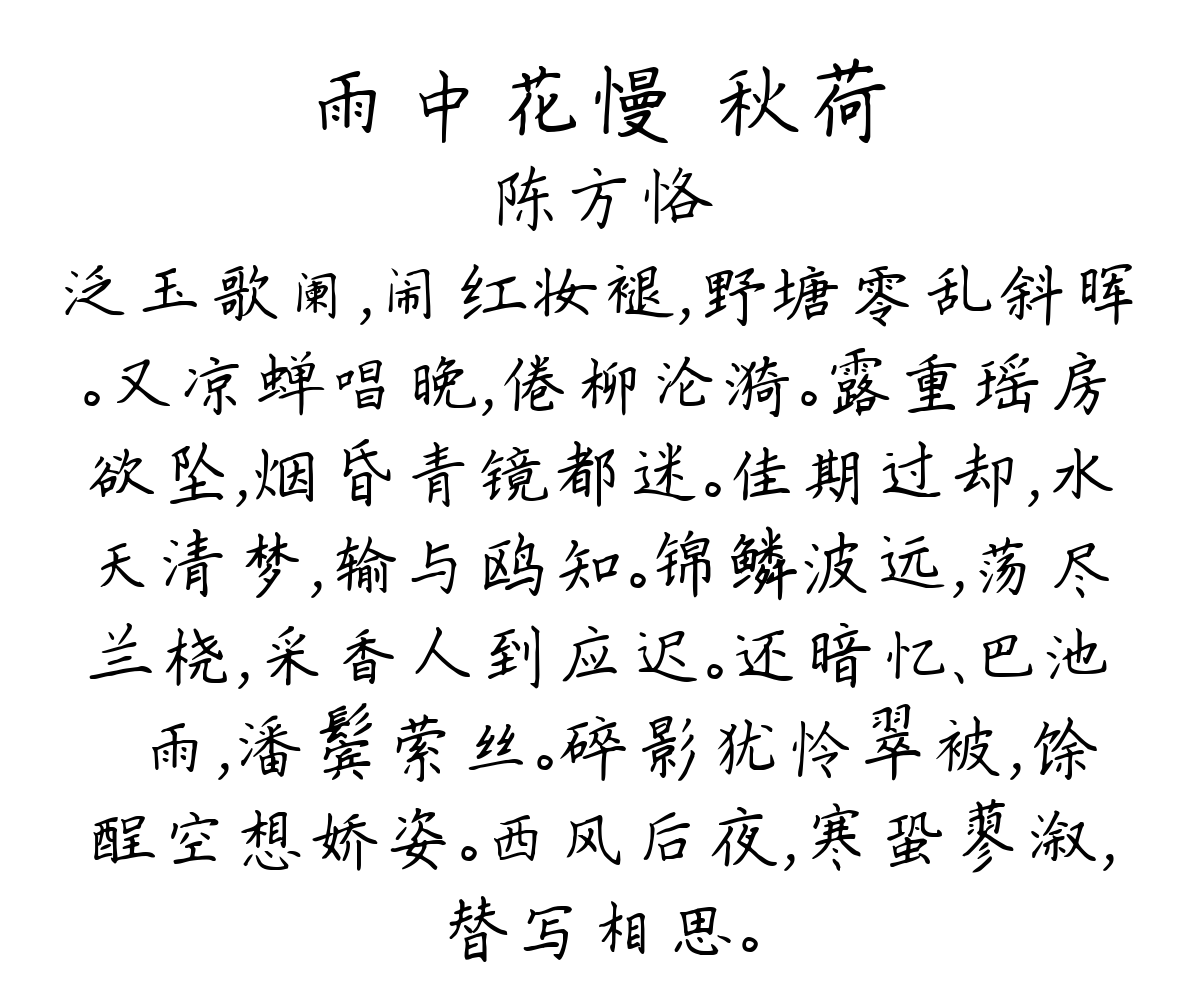 雨中花慢 秋荷
陈方恪
泛玉歌阑,闹红妆褪,野塘零乱斜晖
。又凉蝉唱晚,倦柳沦漪。露重瑶房
欲坠,烟昏青镜都迷。佳期过却,水
天清梦,输与鸥知。锦鳞波远,荡尽
兰桡,采香人到应迟。还暗忆、巴池
雨,潘鬓萦丝。碎影犹怜翠被,馀
酲空想娇姿。西风后夜,寒蛩蓼溆,
替写相思。